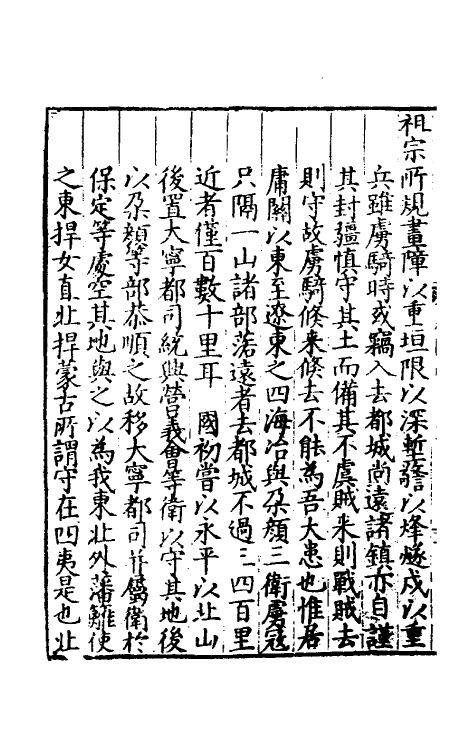 祖宗所規畫障以重垣限以深塹警以烽燧戍以重
兵雖虜騎時或竊入去都城尚遠諸鎮亦自謹
其封疆慎守其土而備其不虞賊來則戰賊去
則守故虜騎倏來倏去不能為吾大患也惟居
庸關以東至遼東之四海冶與朶顏三衛虜寇
只隔一山諸部落遠者去都城不過三四百里
近者僅百數十里耳　國初嘗以永平以北山
後置大寧都司統興營義會等衛以守其地後
以朶顏等部恭順之故移大寧都司并屬衛於
保定等處空其地與之以為我東北外藩籬使
之東捍女直北捍蒙古所謂守在四夷是也北